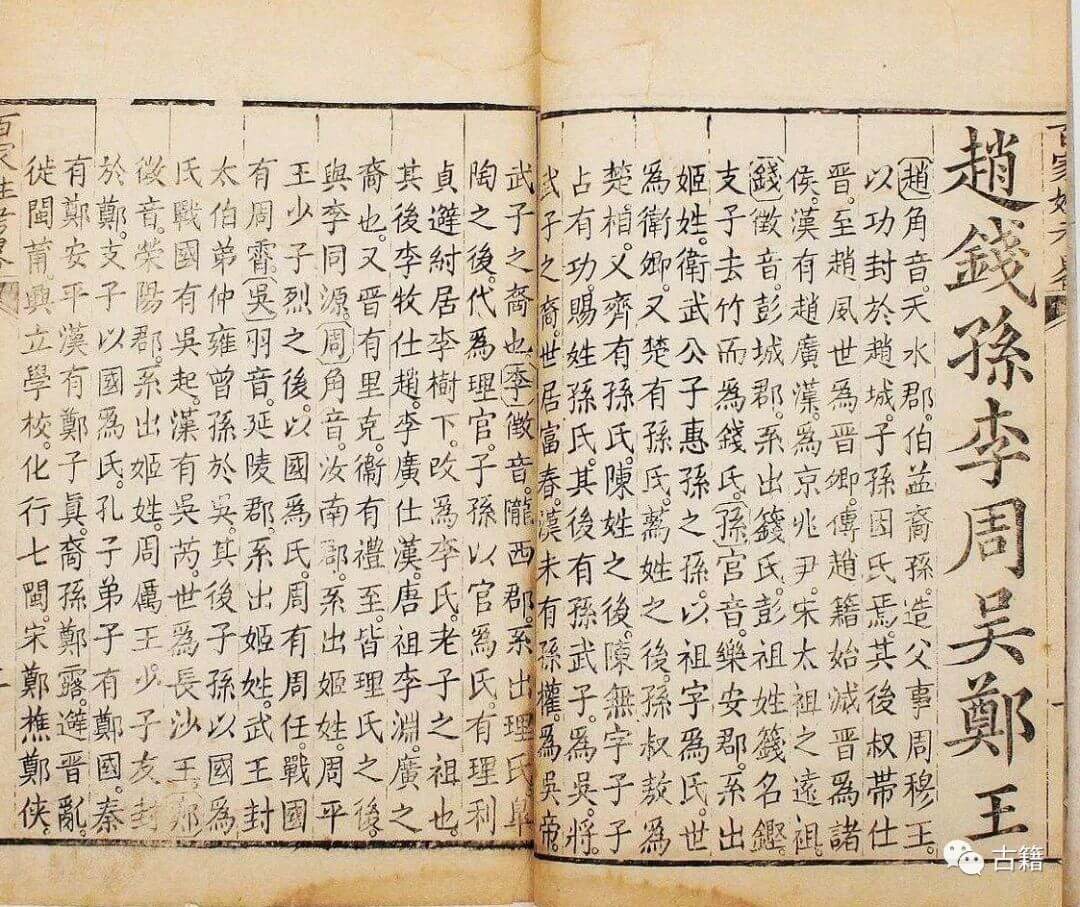 百家姓考畧
趙錢孫李周吴鄭王
趙角音。天水郡。伯益裔孫。造父事周穆王。
以功封於趙城。子孫因氏焉。其後叔帶仕
晉。至趙夙世爲晉卿。傳趙籍始滅晉爲諸
侯。漢有趙廣漢。爲京兆尹。宋太祖之遠祖。
錢徵音。彭城郡。系出籛氏。彭祖姓籛名鏗。
支子去竹而爲錢氏。孫宮音。樂安郡。系出
姬姓。衛武公子惠孫之孫。以祖字爲氏。世
爲衛卿。又楚有孫氏。蒍姓之後。孫叔敖爲
楚相。又齊有孫氏。陳姓之後。陳無宇子子
占有功。賜姓孫氏。其後有孫武子。爲吳將。
武子之裔。世居富春。漢末有孫權。爲吳帝。
武子之裔也。李徵音。隴西郡。系出理氏。臯
陶之後。代爲理官。子孫以官爲氏。有理利
貞避紂居李樹下。改爲李氏。老子之祖也。
其後李牧仕趙。李廣仕漢。唐祖李淵。廣之
裔也。又晉有里克。衞有禮至。皆理氏之後。
與李同源。周角音。汝南郡。系出姬姓。周平
王少子烈之後。以國爲氏。周有周任。戰國
有周霄。吳羽音。延陵郡。系出姬姓。武王封
太伯弟仲雍曾孫於吳。其後子孫以國爲
氏。戰國有吳起。漢有吳芮。世爲長沙王。鄭
徵音。榮陽郡。系出姬姓。周厲王少子友封
於鄭。支子以國爲氏。孔子弟子有鄭國。秦
有鄭安平。漢有鄭子眞。裔孫鄭露。避晉亂。
徙閩莆。興立學校。化行七閩。宋鄭樵鄭俠。
百家姓考畧
古籍